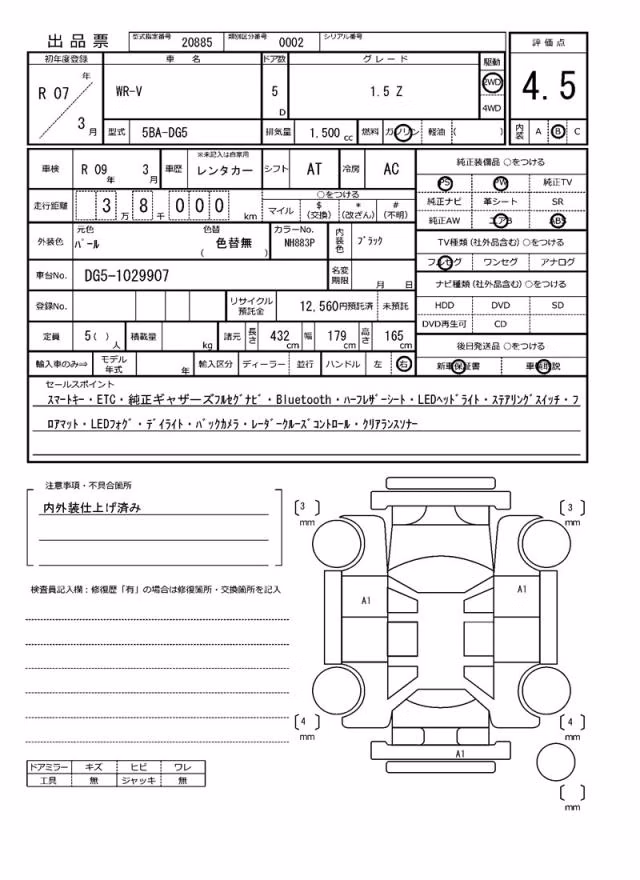 出品票 型式指定番号 20885 類別区分番号 0002 シリアル番号
評価点
4.5
内装 A B C
初年度登録 車名 ドア数 グレード 駆動
R 07 年 3 月 WR-V 5 D 1.5 Z 2WD 4WD
型式 5BA-DG5 排気量 1.500 cc 燃料 ガソリン 軽油 ( )
車検 R 09 年 3 月 車歴 ※未記入は自家用 レンタカー シフト AT 冷房 AC
走行距離 3 万 8 千 0 0 0 km
○をつける
マイル $ (交換) * (改ざん) # (不明)
外装色 元色 パール 色替 色替無 ( ) カラーNo. NH883P 内装色 ブラック
車台No. DG5-1029907 名変期限 月 日
登録No. リサイクル預託金 12,560円預託済 未預託
定員 5( ) 人 積載量 kg 諸元 長さ 432 cm 幅 179 cm 高さ 165 cm
輸入車のみ⇒ モデル年式 年 輸入区分 ディーラー 並行 ハンドル 左 右
純正装備品 ○をつける
PS PW 純正TV
純正ナビ 革シート SR
純正AW エアB ABS
TV種類 (社外品含む) ○をつける
フルセグ ワンセグ アナログ
ナビ種類 (社外品含む) ○をつける
HDD DVD SD
DVD再生可 CD
後日発送品 ○をつける
新車保証書 車輌取説
セールスポイント
スマートキー・ETC・純正ギャザーズフルセグナビ・Bluetooth・ハーフレザーシート・LEDヘッドライト・ステアリングスイッチ・フ
ロアマット・LEDフォグ・デイライト・バックカメラ・レーダークルーズコントロール・クリアランスソナー
注意事項・不具合箇所
内外装仕上げ済み
検査員記入欄：修復歴「有」の場合は修復箇所・交換箇所を記入
ドアミラー キズ ヒビ ワレ
工具 無 ジャッキ 無
[3] mm
[3] mm
A1
A1
[4] mm
[4] mm
A1
[ ] mm